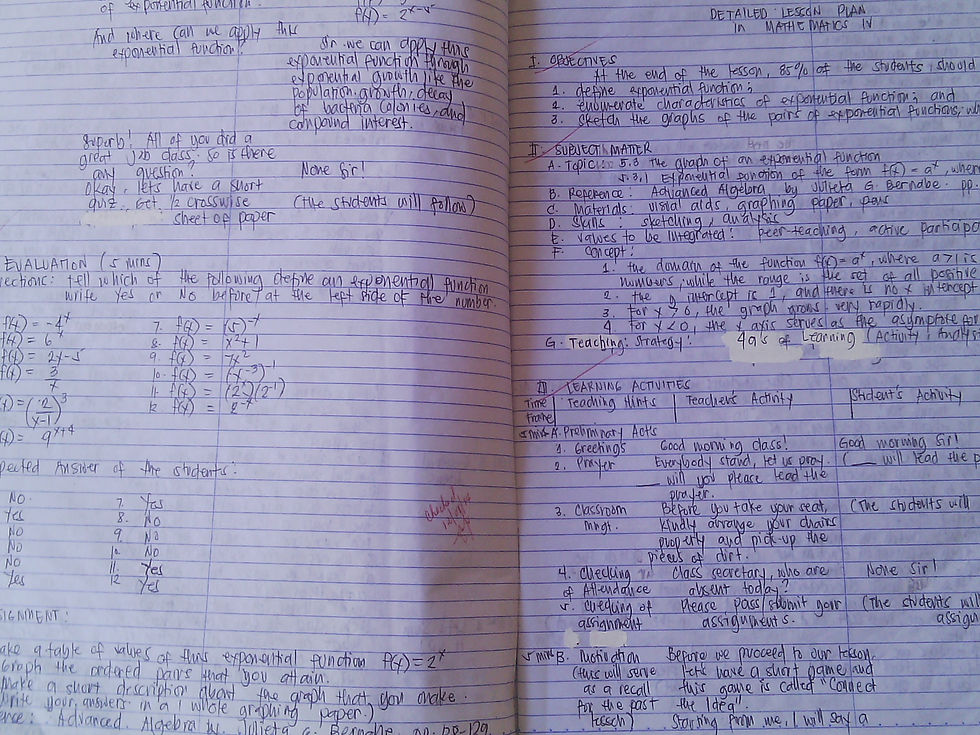 of exponential function.
f(x) = 2^x-5
And where can we apply this
exponential function?
Sir we can apply this
exponential function through
exponential growth like the
population growth, decay
of bacteria colonies, and
compound interest.
Superb! All of you did a
great job class. So is there
any question?
None Sir!
Okay, lets have a short
quiz. Get 1/2 crosswise
(the students will follow)
sheet of paper
EVALUATION (5 mins)
rections: tell which of the following define an exponential function
write Yes or No before/at the left side of the number.
f(x) = -4^x
f(x) = 6^x
f(x) = 2x-5
f(x) = 3
x
f(x) = (2/x-1)^3
(x) = 9^x+4
7. f(x) = (5)^-x
8. f(x) = x^2+1
9. f(x) = -7x^2
10. f(x) = (x^-3)^-1
11. f(x) = (2^x)(2^-1)
12 f(x) = 2^-x
pected Answer of the students:
NO.
Yes
NO
NO
NO
Yes
7. Yes
8. No
9. No
10. No
11. Yes
12 Yes
checked
SIGNMENT:
ake a table of values of this exponential function f(x) = 2^x
Graph the ordered pairs that you attain.
Make a short description about the graph that you make.
Write your answers in a 1 whole graphing paper.)
ence: Advanced Algebra by Julieta G. Bernabe, pp. 128-129
DETAILED LESSON PLAN
in MATHEMATICS IV
I. OBJECTIVES
At the end of the lesson, 85% of the students should
1. define exponential function;
2. enumerate characteristics of exponential function; and
3. sketch the graphs of the pairs of exponential functions, wh
II. SUBJECT MATTER
A. Topic: 5.3 The graph of an exponential function
5.3.1 Exponential function of the form f(x) = a^x, where
B. Reference: Advanced Algebra by Julieta G. Bernabe. pp.
C. Materials: visual aids, graphing paper, pens
D. Skills: sketching, analysis
E. Values to be Integrated: peer-teaching, active participa
F. Concept:
1. the domain of the function f(x) = a^x, where a>1 is
numbers, while the range is the set of all positive
2. the y intercept is 1, and there is no x intercept
3. For x > 0, the graph grows very rapidly.
4. For x < 0, the x axis serves as the asymptote for
G. Teaching Strategy: 4a's of Learning (Activity, Analysis
III. LEARNING ACTIVITIES
Time Frame | Teaching Hints | Teacher's Activity | Student's Activity
5 mins A. Preliminary Acts
1. Greetings Good morning class! Good morning Sir!
2. Prayer Everybody stand, let us pray. (___ will lead the p
___ will you please lead the
prayer.
3. Classroom Before you take your seat, (The students will
mngt. kindly arrange your chairs
properly and pick-up the
pieces of dirt.
4. Checking Class secretary, who are None Sir!
of Attendance absent today?
5. Checking of Please pass/submit your (The students will
assignment assignments. assign
5 mins B. Motivation Before we proceed to our lesson,
(this will serve let's have a short game and
as a recall this game is called "Connect
for the past the Idea".
lesson) Starting from me, I will say a